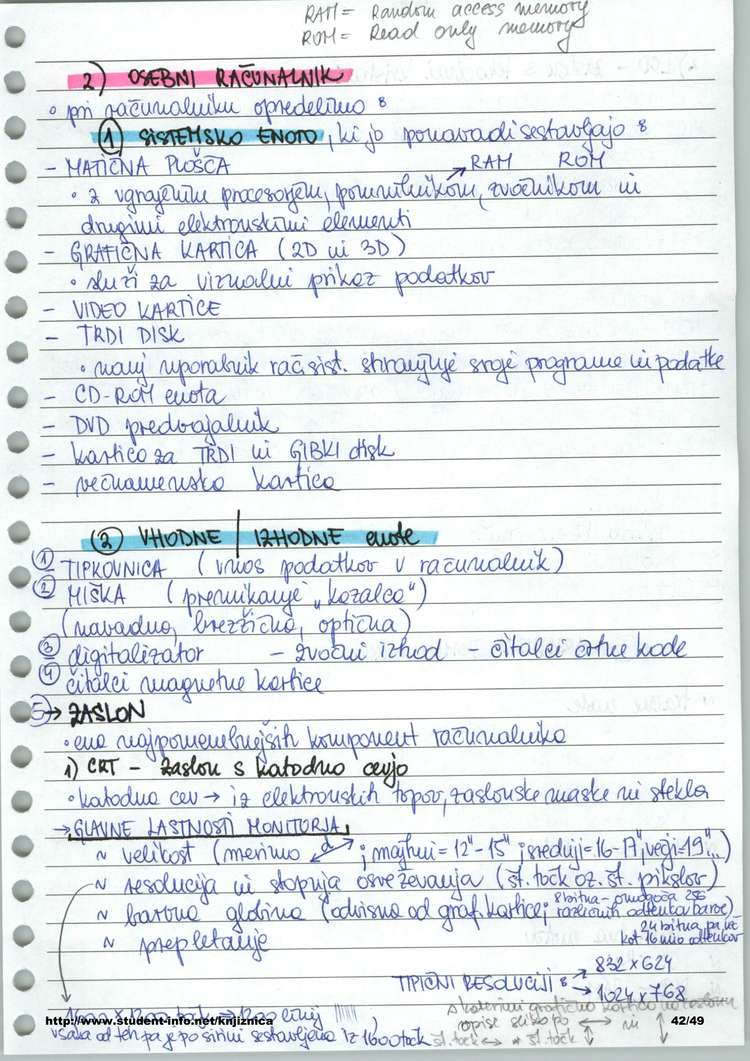 RAM = Random access memory
ROM = Read only memory
2) OSEBNI RAČUNALNIK
• pri računalniku opredelimo:
① SISTEMSKO ENOTO, ki jo ponavadi sestavljajo:
- MATIČNA PLOŠČA → RAM ROM
• z vgrajenim procesorjem, pomnilnikom, zvočnikom in
drugimi elektronskimi elementi
- GRAFIČNA KARTICA (2D in 3D)
• služi za vizualni prikaz podatkov
- VIDEO KARTICE
- TRDI DISK
• nanj uporabnik rač.sist. shranjuje svoje programe in podatke
- CD-ROM enota
- DVD predvajalnik
- kartico za TRDI in GIBKI disk
- večnamensko kartico
② VHODNE / IZHODNE enote
① TIPKOVNICA (vnos podatkov v računalnik)
② MIŠKA (premikanje "kazalca")
(navadna, brezžična, optična)
③ digitalizator - zvočni izhod - čitalci črtne kode
④ čitalci magnetne kartice
5→ ZASLON
• ena najpomembnejših komponent računalnika
1) CRT - zaslon s katodno cevjo
• katodna cev → iz elektronskih topov, zaslonske maske in stekla
→ GLAVNE LASTNOSTI MONITORJA
~ velikost (merimo d; majhni = 12"-15"; srednji = 16-17", večji = 19"...)
~ resolucija in stopnja osveževanja (št. točk oz. št. pikslov)
~ barvna globina (odvisna od graf. kartice; 8 bitna - omogoča 256 različnih odtenkov barve)
24 bitna pa več
kot 16 mio odtenkov
~ prepletanje
TIPIČNI RESOLUCIJI: → 832 x 624
→ 1024 x 768
1600 x 1200 točk → 1200 linij
s katerimi grafično kartico na zaslonu
vsaka od teh pa je po širini sestavljena iz 1600 točk
opiše sliko po
št. točk ↔ * št. točk ↕
http://www.student-info.net/knjiznica
42/49